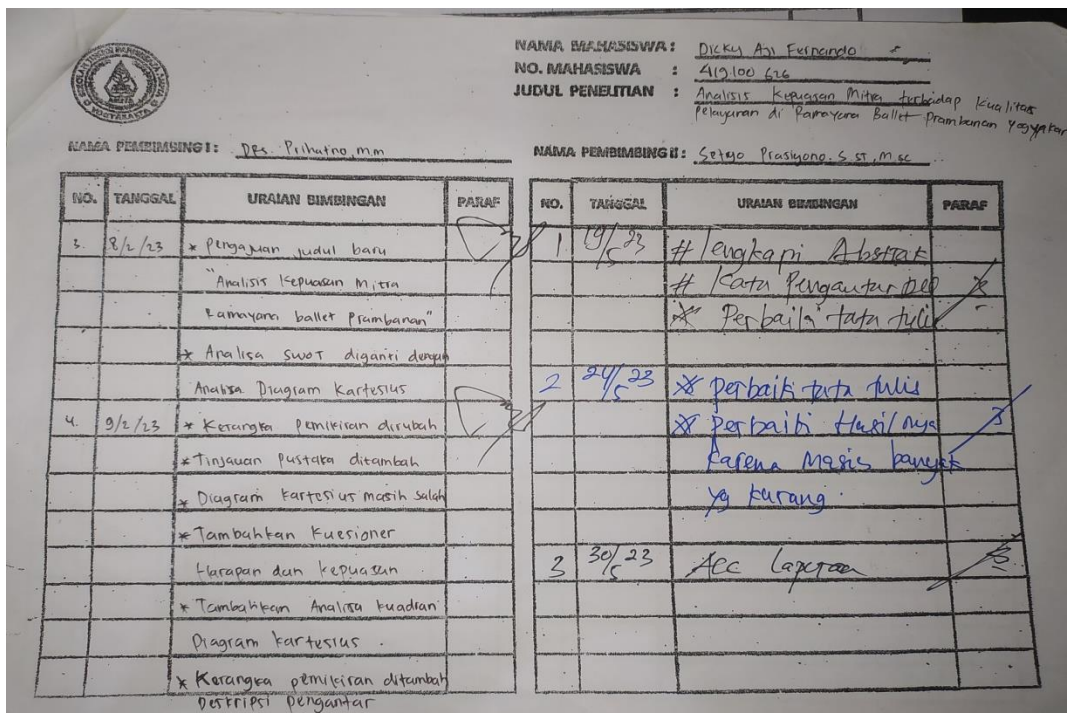 NAMA MAHASISWA : Dicky Aji Fernando
NO. MAHASISWA : 419100626
JUDUL PENELITIAN : Analisis Kepuasan Mitra terhadap Kualitas
Pelayanan di Ramayana Ballet Prambanan Yogyakar
NAMA PEMBIMBING I : Drs. Prihatno, mm
NO. TANGGAL URAIAN BIMBINGAN PARAF
3. 8/2/23 * Pengajuan judul baru
"Analisis Kepuasan Mitra
Ramayana ballet Prambanan"
* Analisa SWOT diganti dengan
Analisa Diagram Kartesius
4. 9/2/23 * Kerangka Pemikiran dirubah
* Tinjauan Pustaka ditambah
* Diagram kartesius masih salah
* Tambahkan Kuesioner
Harapan dan Kepuasan
* Tambahkan Analisa kuadran
Diagram kartesius
* Kerangka pemikiran ditambah
Deskripsi Pengantar
NAMA PEMBIMBING II : Setyo Prasiyono, S ST, M.sc
NO. TANGGAL URAIAN BIMBINGAN PARAF
1 19/5 23 # lengkapi Abstrak
# Kata Pengantar
* Perbaiki tata tulis
2 24/5 23 * Perbaiki tata tulis
* Perbaiki Hasilnya
karena masis banyak
yg kurang.
3 30/5 23 Acc laporan